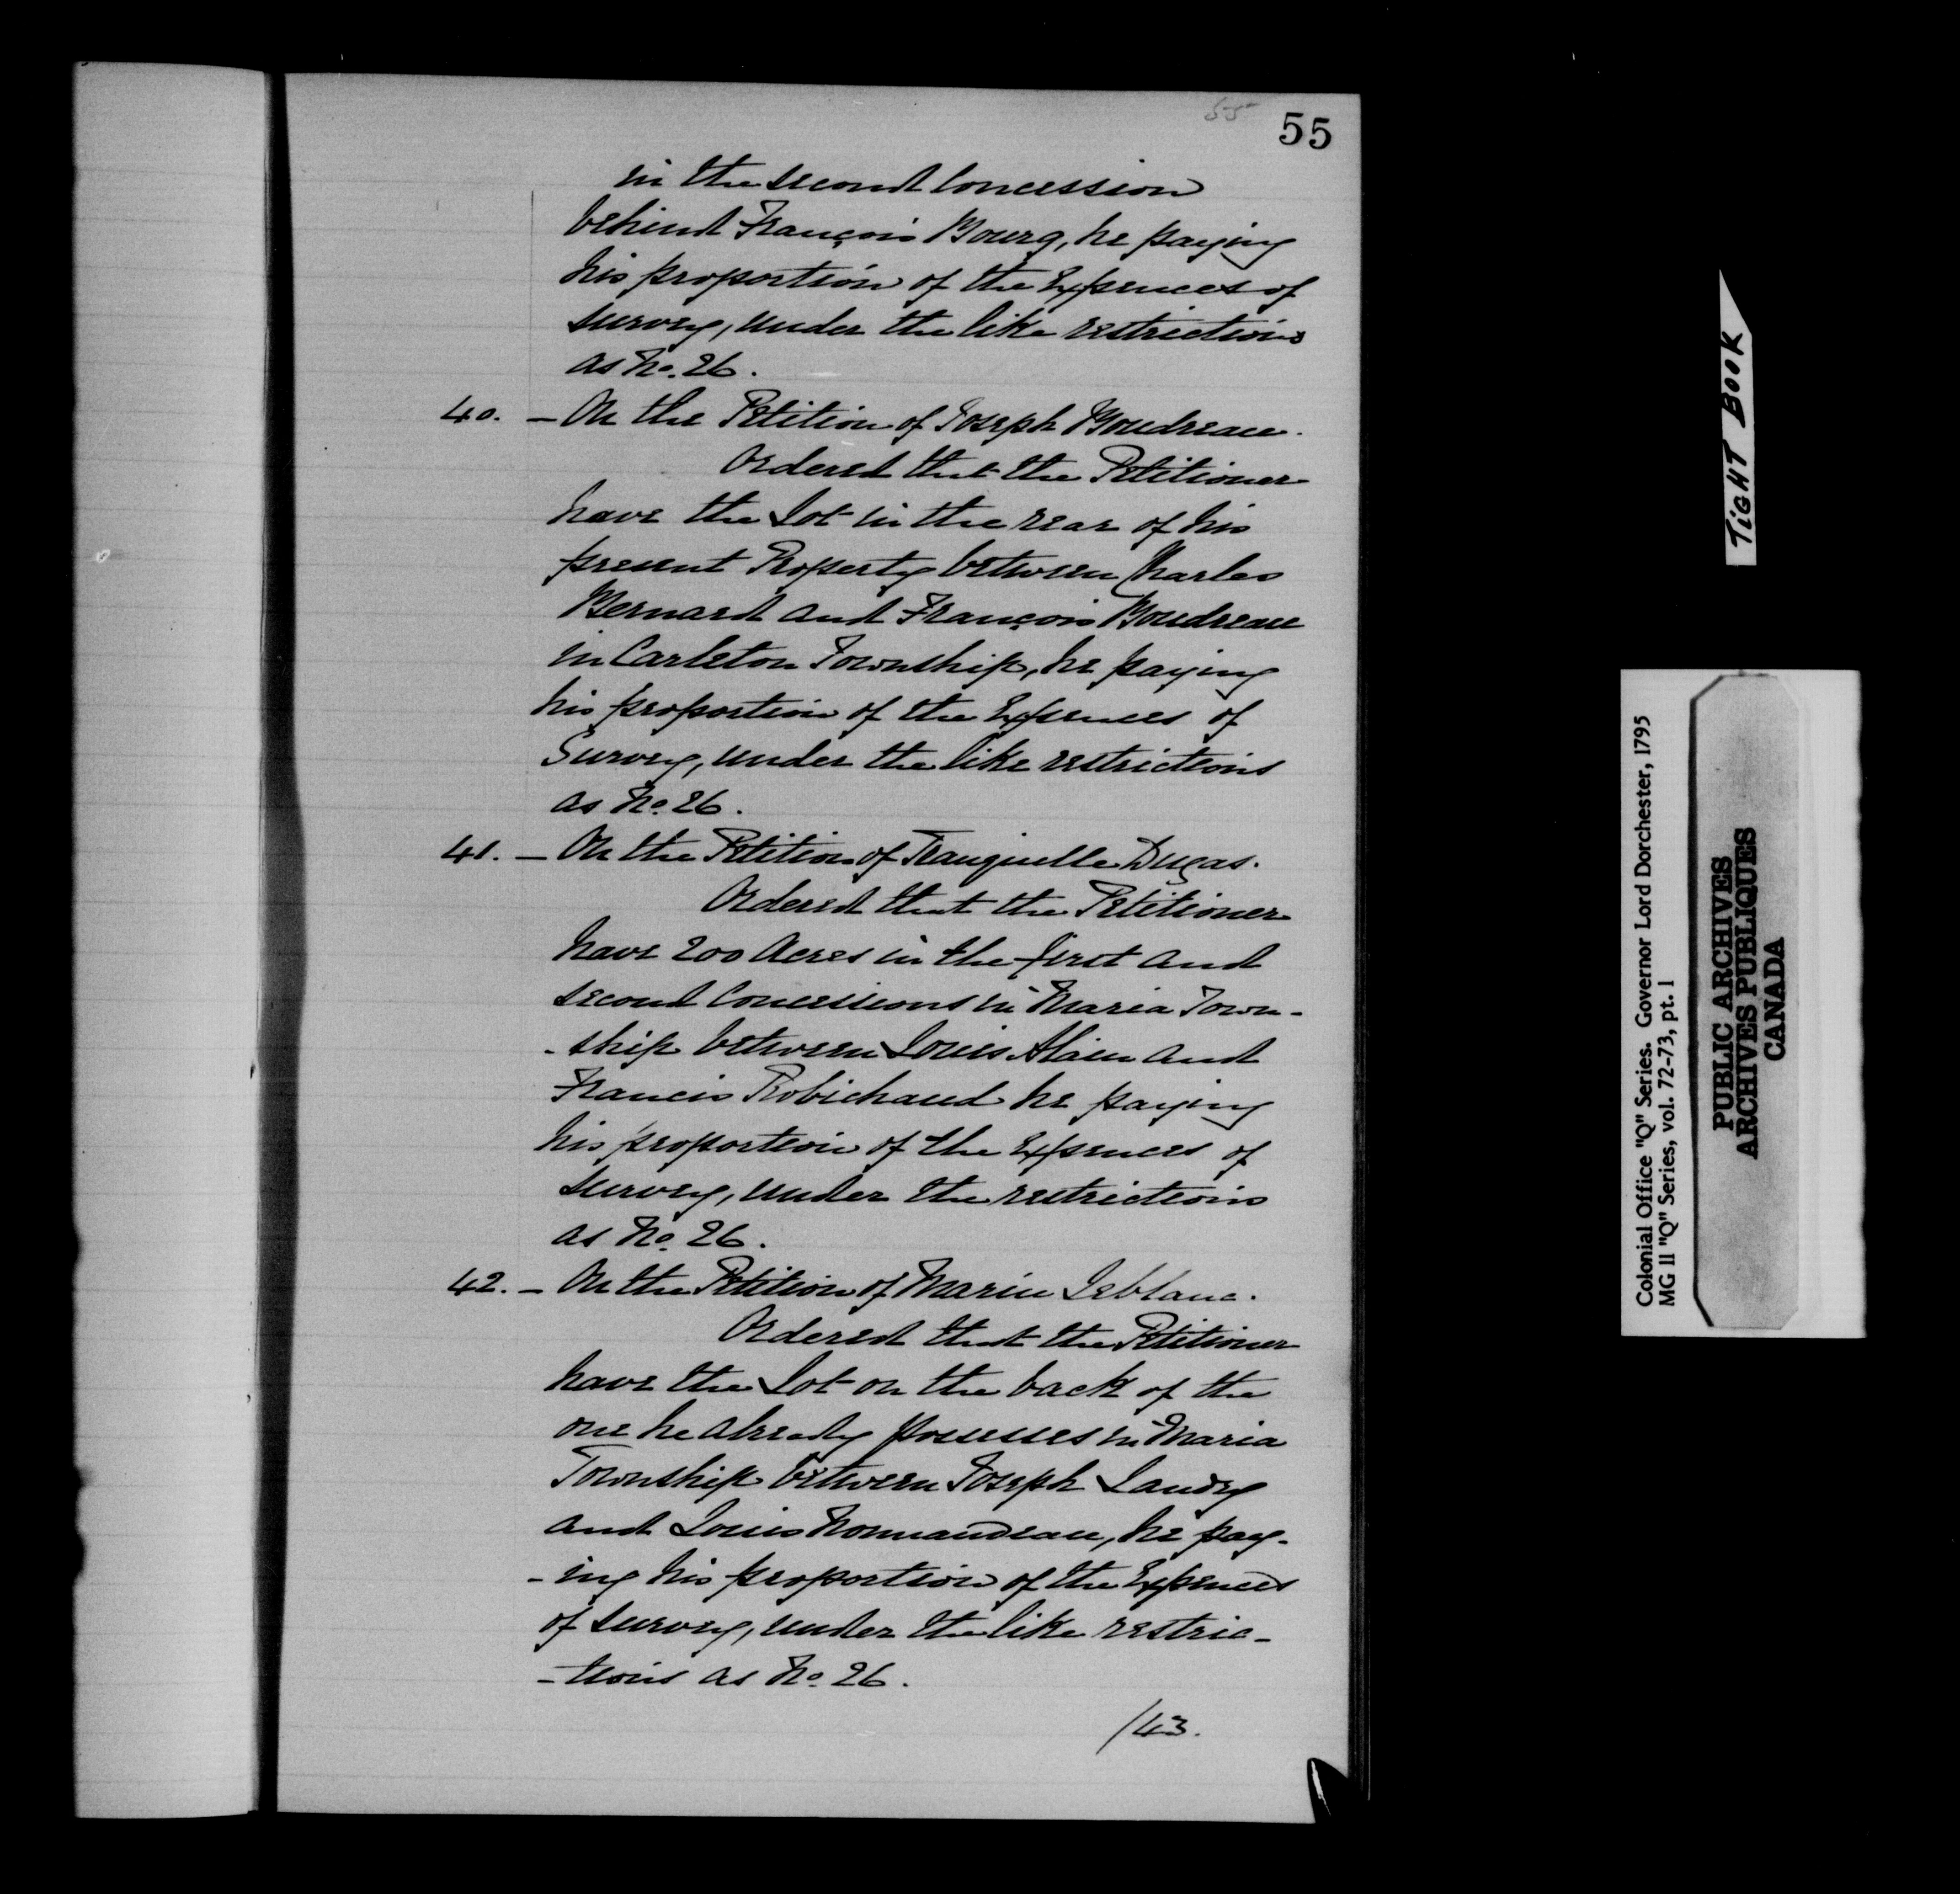 55
55
in the second Concession
behind François Bourg, he paying
his proportion of the Expences of
survey, under the like restrictions
as No. 26.
40. — On the Petition of Joseph Boudreau.
Ordered that the Petitioner
have the Lot in the rear of his
present Property between Charles
Bernard and François Boudreau
in Carleton Township, he paying
his proportion of the Expences of
Survey, under the like restrictions
as No. 26.
41. — On the Petition of Tranquille Dugas.
Ordered that the Petitioner
have 200 Acres in the first and
second Concessions in Maria Town-
-ship between Louis Alain and
Francis Robichaud he paying
his proportion of the Expences of
survey, under the restrictions
as No. 26.
42. — On the Petition of Marin Leblanc.
Ordered that the Petitioner
have the Lot on the back of the
one he already possesses in Maria
Township between Joseph Landry
and Louis Normandeau, he pay-
-ing his proportion of the Expences
of survey, under the like restric-
-tions as No. 26.
/43.
TIGHT BOOK
Colonial Office "Q" Series. Governor Lord Dorchester, 1795
MG 11 "Q" Series, vol. 72-73, pt. 1
PUBLIC ARCHIVES
ARCHIVES PUBLIQUES
CANADA